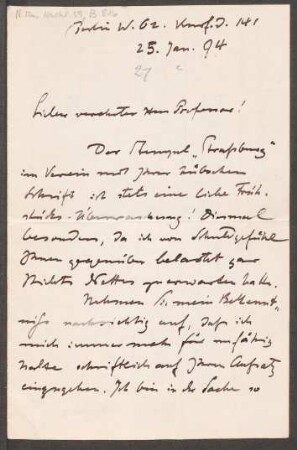 Berlin W. 62. Kurf. D. 141
25. Jan. 94
27
Lieber verehrter Herr Professor!
Der Stempel „Straßburg"
im Verein mit Ihrer hübschen
Schrift ist stets eine liebe Früh-
stücks-Überraschung! Diesmal
besonders, da ich von Schuldgefühl
Ihnen gegenüber belastet gar
Nichts Nettes zu erwarten hatte.
Nehmen Sie mein Bekennt-
niss nachsichtig auf, daß ich
mich immer noch für unfähig
halte schriftlich auf Ihren Aufsatz
einzugehen. Ich bin in der Sache so